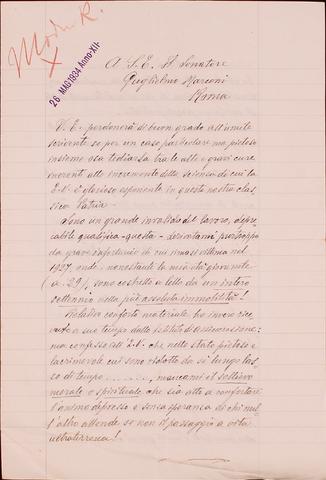 Mod. R.
X
26 MAG 1934 Anno XII
A S. E. Il Senatore
Guglielmo Marconi
Roma
V. E. perdonerà di buon grado all'umile
scrivente se per un caso particolare ma pietoso
insieme osa tediarla tra le alte e gravi cure
inerenti all' incremento della scienza di cui la
E. V. è glorioso esponente in questa nostra clas-
sica Patria.
Sono un grande invalido del lavoro, depre-
cabile qualifica - questa - derivatami purtroppo
da grave infortunio di cui rimasi vittima nel
1927, onde, nonostante la mia età giovanile
(a. 29), sono costretto a letto da un intero
settennio nella più assoluta immobilità!
conforto materiale ho invero rice-
vuto a suo tempo dallo Istituto di assicurazione:
ma confesso all' E. V. che nello stato pietoso e
lacrimevole cui sono ridotto da sì lungo las-
so di tempo ........, mancami il sollievo
morale o spirituale che sia atto a confortare
l'animo depresso e senza speranza di chi nul-
l'altro attende se non il passaggio a vita
ultraterrena!